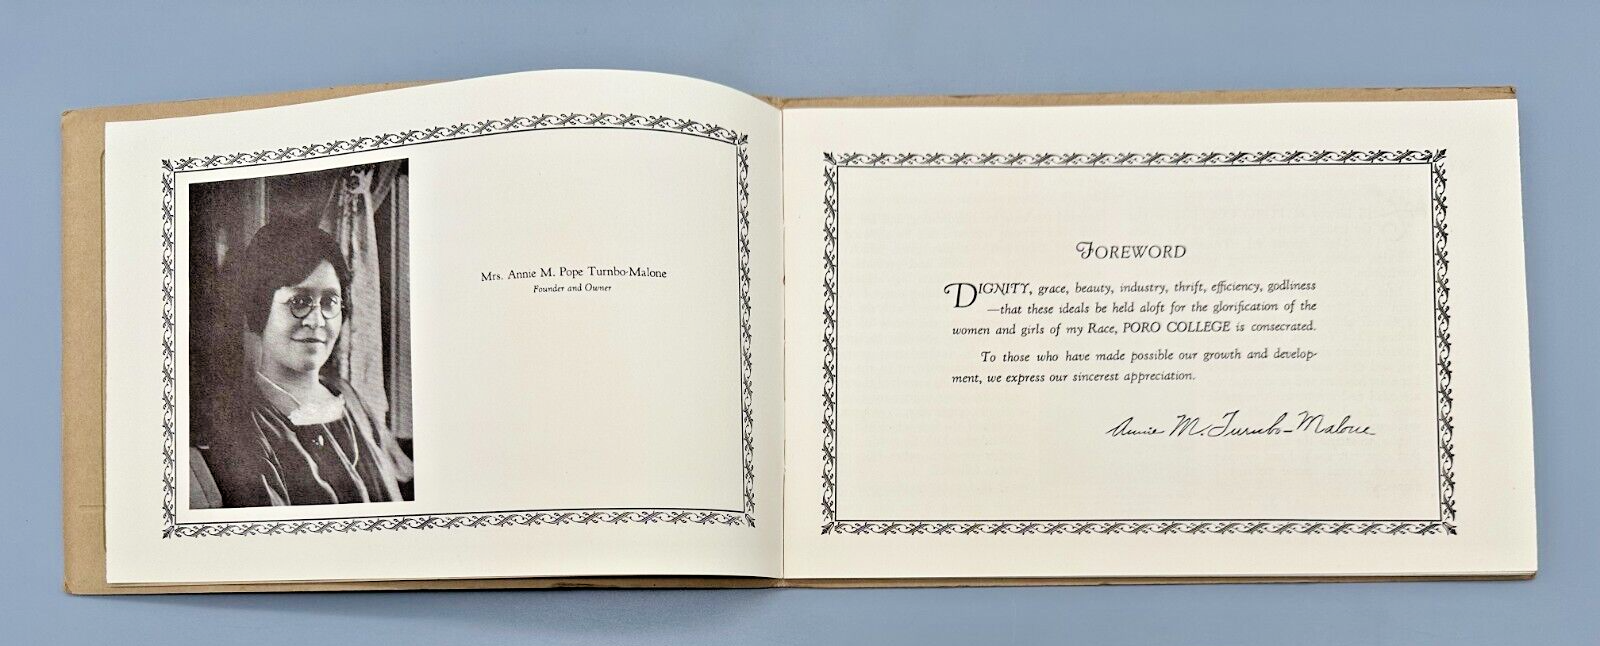 Mrs. Annie M. Pope Turnbo-Malone
Founder and Owner
FOREWORD
DIGNITY, grace, beauty, industry, thrift, efficiency, godliness
—that these ideals be held aloft for the glorification of the
women and girls of my Race, PORO COLLEGE is consecrated.
To those who have made possible our growth and develop-
ment, we express our sincerest appreciation.
Annie M. Turnbo-Malone